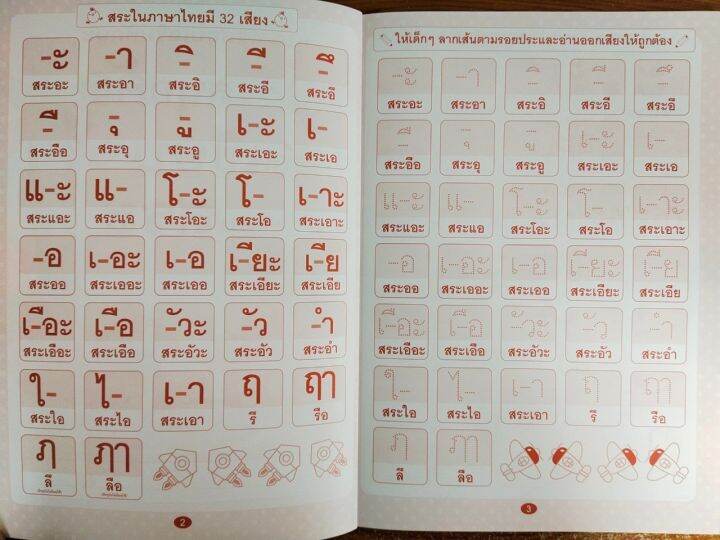 สระในภาษาไทยมี 32 เสียง
-ะ -า -ิ -ี -ึ
สระอะ สระอา สระอิ สระอี สระอึ
-ื -ุ -ู เ-ะ เ-
สระอือ สระอุ สระอู สระเอะ สระเอ
แ-ะ แ- โ-ะ โ- เ-าะ
สระแอะ สระแอ สระโอะ สระโอ สระเอาะ
-อ เ-อะ เ-อ เ-ียะ เ-ีย
สระออ สระเออะ สระเออ สระเอียะ สระเอีย
เ-ือะ เ-ือ -ัวะ -ัว -ำ
สระเอือะ สระเอือ สระอัวะ สระอัว สระอำ
ใ- ไ- เ-า ฤ ฤๅ
สระใอ สระไอ สระเอา รึ รือ
ฦ ฦๅ
ลึ ลือ
2
ให้เด็กๆ ลากเส้นตามรอยประและอ่านออกเสียงให้ถูกต้อง
-ะ -า -ิ -ี -ึ
สระอะ สระอา สระอิ สระอี สระอึ
-ื -ุ -ู เ-ะ เ-
สระอือ สระอุ สระอู สระเอะ สระเอ
แ-ะ แ- โ-ะ โ- เ-าะ
สระแอะ สระแอ สระโอะ สระโอ สระเอาะ
-อ เ-อะ เ-อ เ-ียะ เ-ีย
สระออ สระเออะ สระเออ สระเอียะ สระเอีย
เ-ือะ เ-ือ -ัวะ -ัว -ำ
สระเอือะ สระเอือ สระอัวะ สระอัว สระอำ
ใ- ไ- เ-า ฤ ฤๅ
สระใอ สระไอ สระเอา รึ รือ
ฦ ฦๅ
ลึ ลือ
3